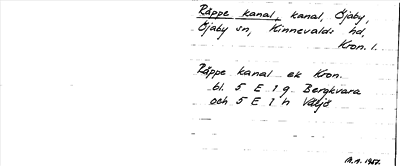 Räppe kanal, kanal, Öjaby,
Öjaby sn, Kinnevalds hd,
Kron. l.
Räppe kanal ek Kron.
bl. 5 E 1 g Bergkvara
och 5 E 1 h Växjö
1967.